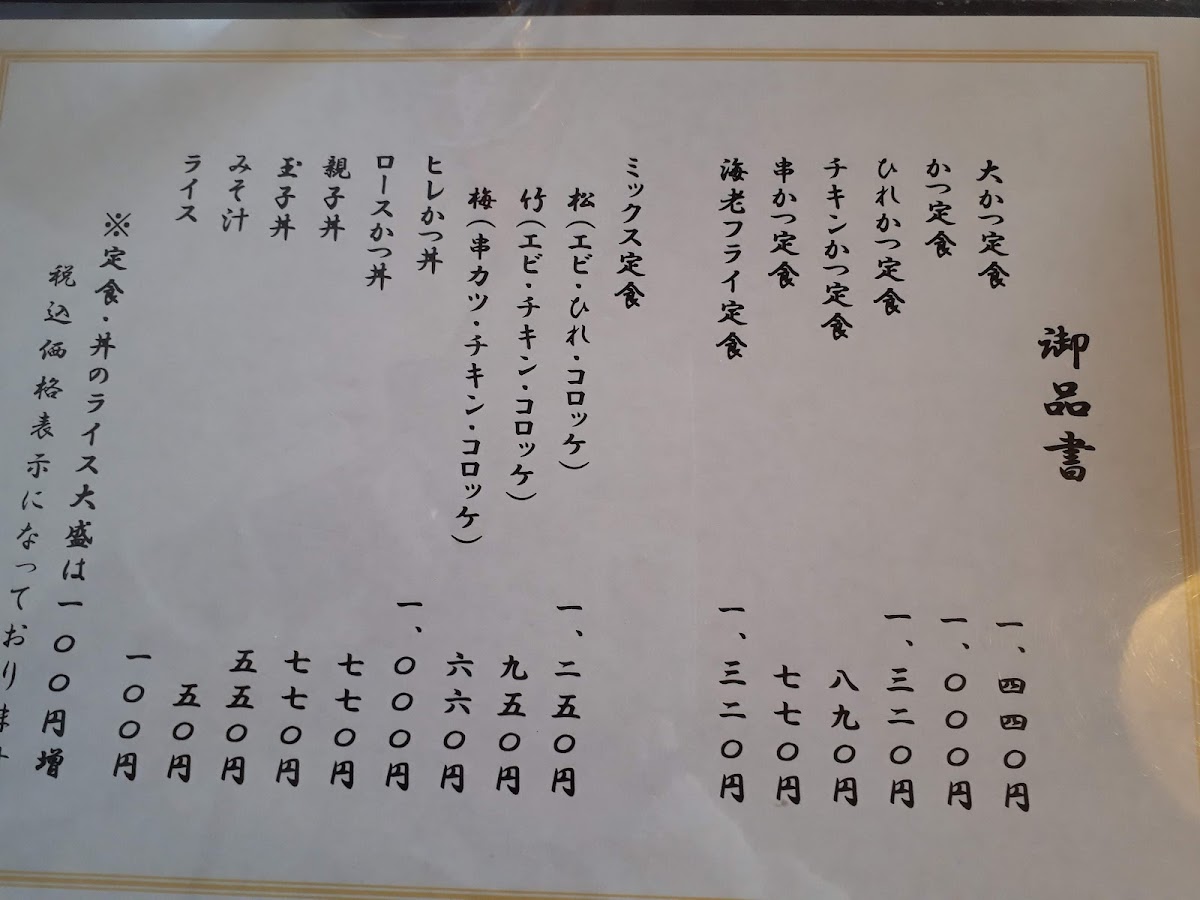 御品書
大かつ定食 一、四四〇円
かつ定食 一、〇〇〇円
ひれかつ定食 一、三二〇円
チキンかつ定食 八九〇円
串かつ定食 七七〇円
海老フライ定食 一、三二〇円
ミックス定食
松(エビ・ひれ・コロッケ) 一、二五〇円
竹(エビ・チキン・コロッケ) 九五〇円
梅(串カツ・チキン・コロッケ) 六六〇円
ヒレかつ丼 一、〇〇〇円
ロースかつ丼 七七〇円
親子丼 七七〇円
玉子丼 五五〇円
みそ汁 五〇円
ライス 一〇〇円
※定食・丼のライス大盛は一〇〇円増
税込価格表示になっておりま